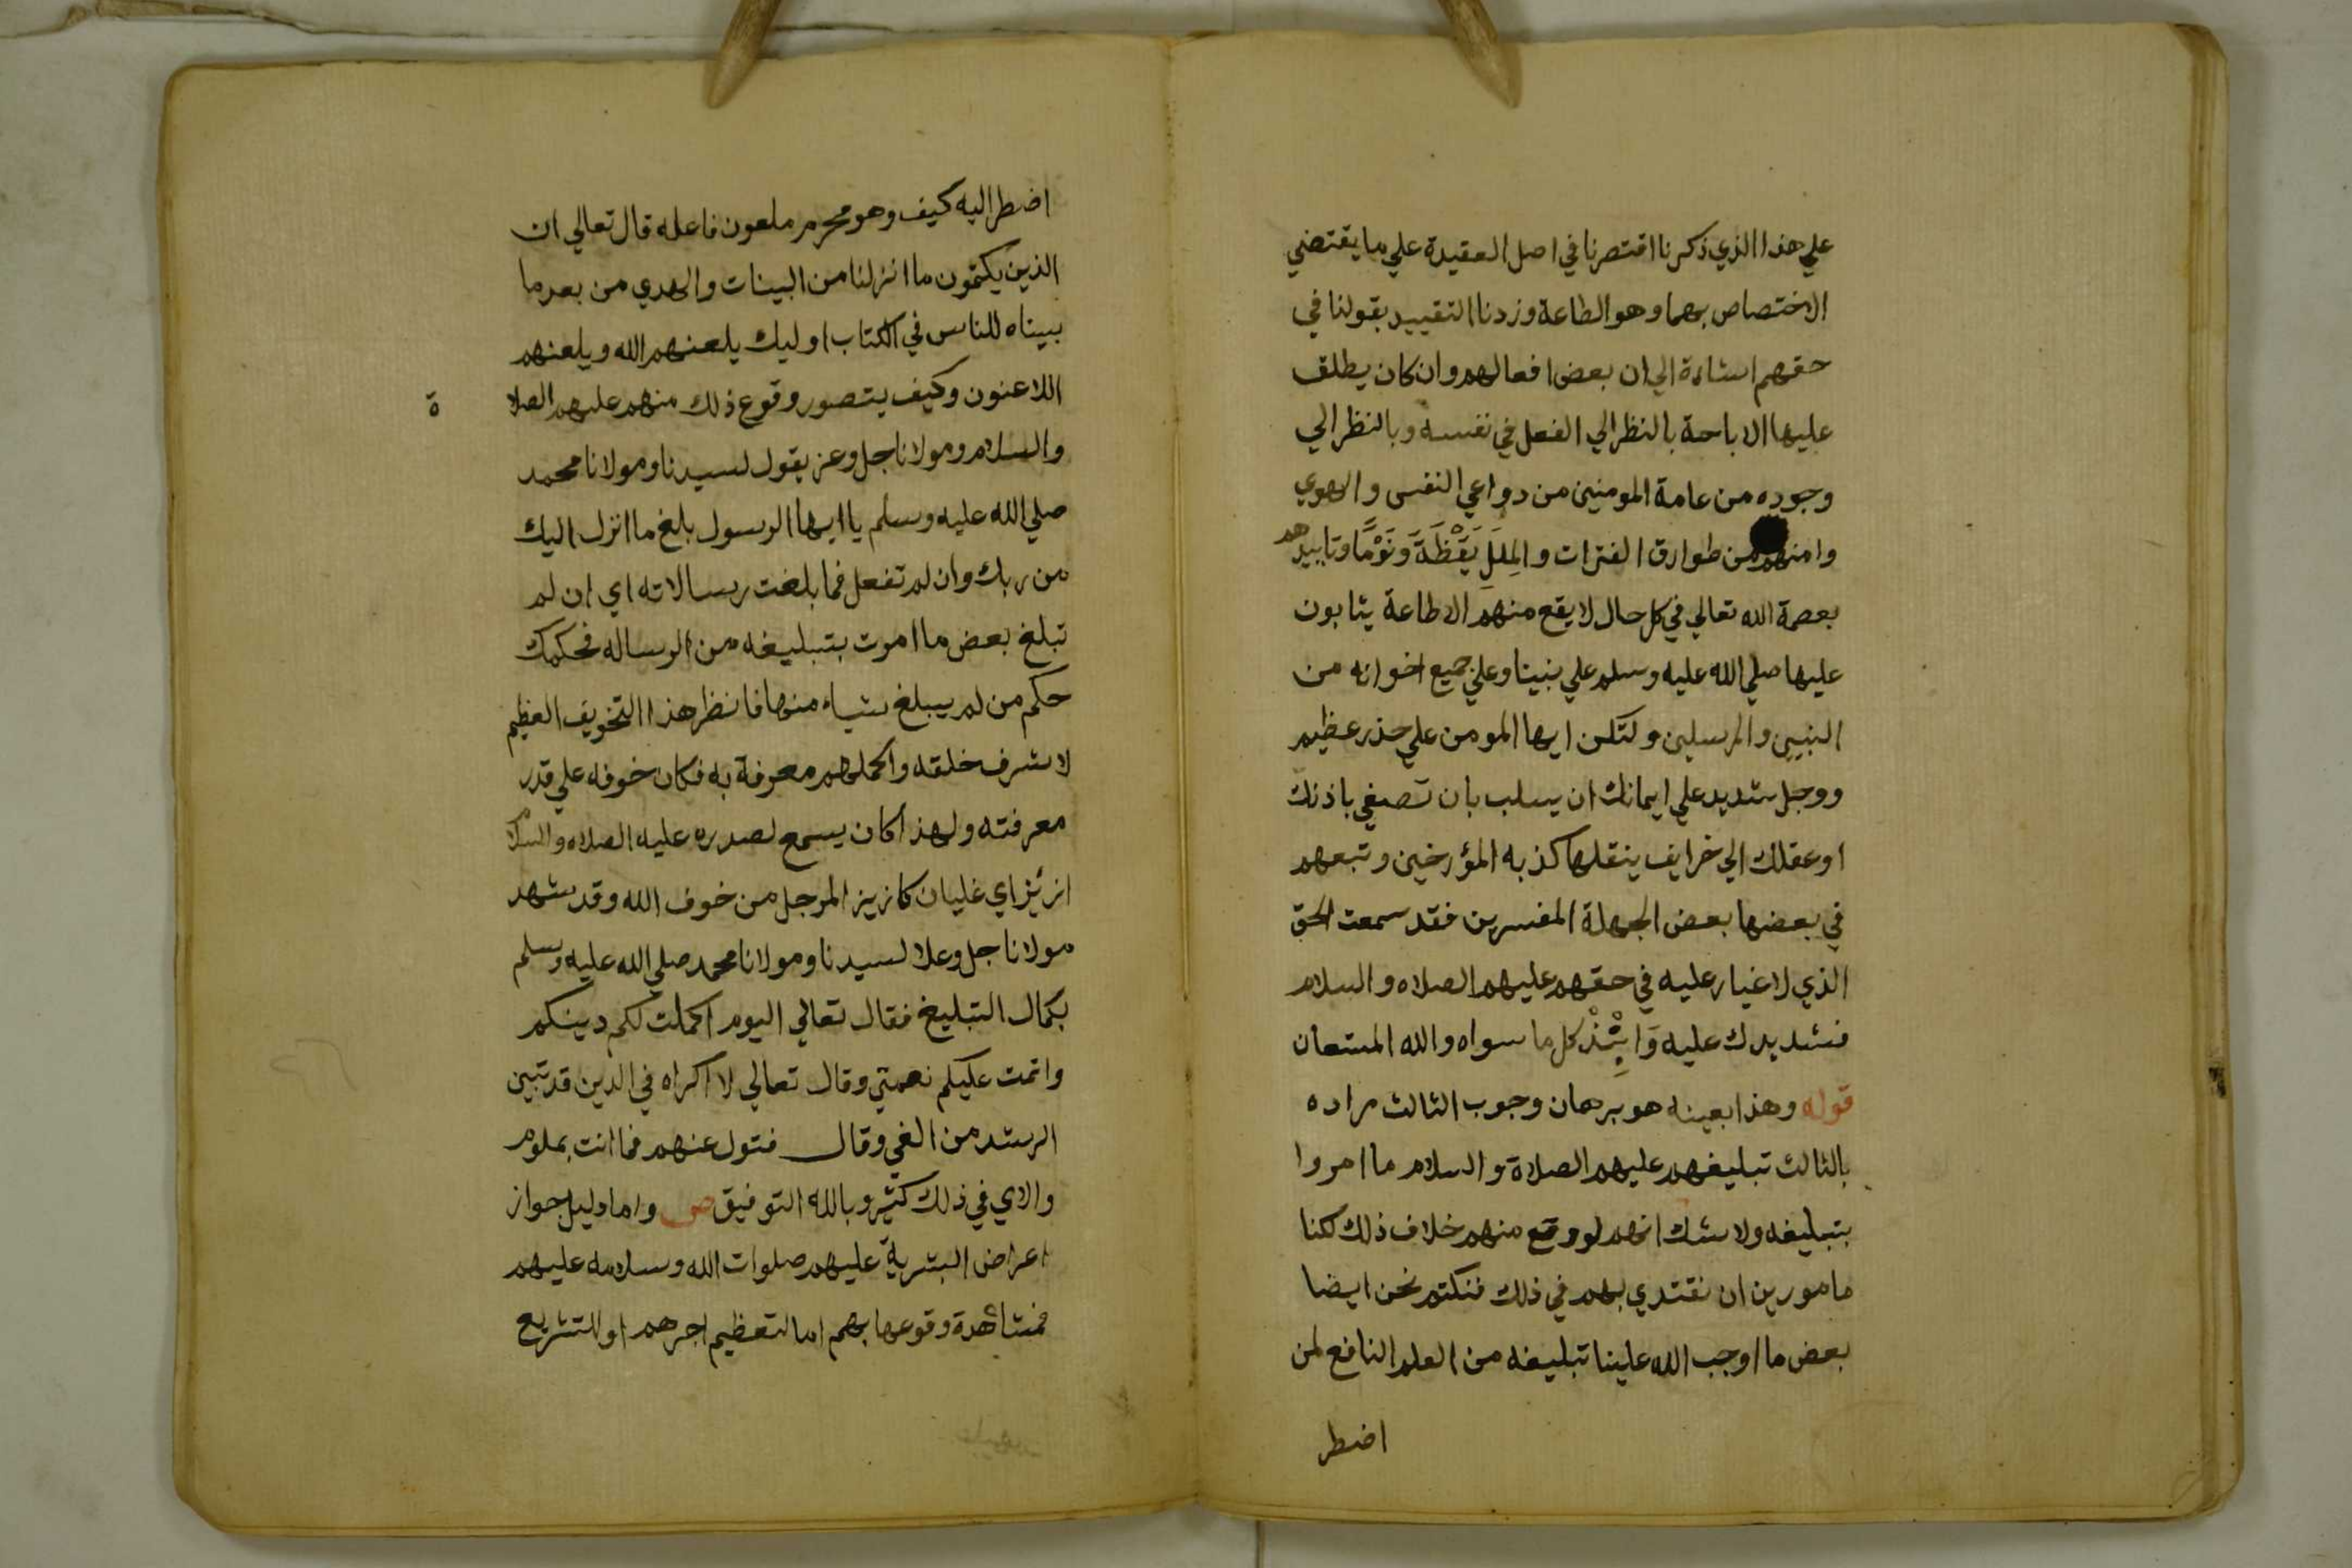 علي هذا الذي ذكرنا اقتصرنا في اصل العقيدة علي ما يقتضي
الاختصاص بهما وهو الطاعة وزدنا التقييد بقولنا في
حقهم اشارة الي ان بعض افعالهم وان كان يطلق
عليها الاباحة بالنظر الي الفعل في نفسه وبالنظر الي
وجوده من عامة المومنين من دواعي النفس والهوي
وامنهم من طوارق الفترات والمِلَلِ يَقْظَةً ونَوْمًا وتاييدهم
بعصمة الله تعالي في كل حال لا يقع منهم الا طاعة يثابون
عليها صلي الله عليه وسلم علي نبينا وعلي جميع اخوانه من
النبيين والمرسلين ولتكن ايها المومن علي حذر عظيم
ووجل شديد علي ايمانك ان يسلب بان تصغي باذنك
او عقلك الي خرايف ينقلها كذبه المؤرخين وتبعهم
في بعضها بعض الجهلة المفسرين فقد سمعت الحق
الذي لا غبار عليه في حقهم عليهم الصلاه والسلام
فشد يدك عليه وَانْبِذْ كل ما سواه والله المستعان
قوله وهذا بعينه هو برهان وجوب الثالث مراده
بالثالث تبليغهم عليهم الصلاة والسلام ما امروا
بتبليغه ولا شك انهم لو وقع منهم خلاف ذلك لكنا
مامورين ان نقتدي بهم في ذلك فنكتم نحن ايضا
بعض ما اوجب الله علينا تبليغه من العلم النافع لمن
اضطر
اضطر اليه كيف وهو محرم ملعون فاعله قال تعالي ان
الذين يكتمون ما انزلنا من البينات والهدي من بعد ما
بيناه للناس في الكتاب اوليك يلعنهم الله ويلعنهم
اللاعنون وكيف يتصور وقوع ذلك منهم عليهم الصلاة
والسلام ومولانا جل وعز يقول لسيدنا ومولانا محمد
صلي الله عليه وسلم يا ايها الرسول بلغ ما انزل اليك
من ربك وان لم تفعل فما بلغت رسالاته اي ان لم
تبلغ بعض ما امرت بتبليغه من الرساله فحكمك
حكم من لم يبلغ شياء منها فانظر هذا التخويف العظيم
لاشرف خلقه واكملهم معرفة به فكان خوفه علي قدر
معرفته ولهذا كان يسمع لصدره عليه الصلاه والسلام
ازيز اي غليان كازيز المرجل من خوف الله وقد شهد
مولانا جل وعلا لسيدنا ومولانا محمد صلي الله عليه وسلم
بكمال التبليغ فقال تعالي اليوم اكملت لكم دينكم
واتمت عليكم نعمتي وقال تعالي لا اكراه في الدين قد تبين
الرشد من الغي وقال فتول عنهم فما انت بملوم
والاي في ذلك كثير وبالله التوفيق ص واما دليل جواز
اعراض البشرية عليهم صلوات الله وسلامه عليهم
فمشاهدة وقوعها بهم اما لتعظيم اجرهم او للتشريع